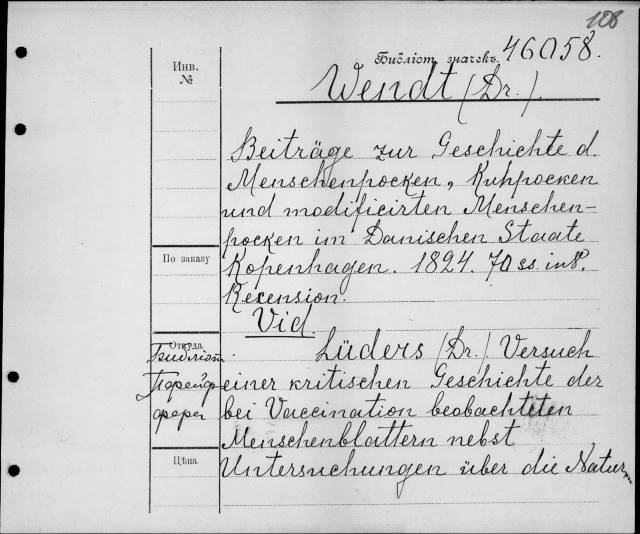 108
Библіот. значекъ 46058.
Инв.
№
Wendt (Dr.)
Beiträge zur Geschichte d.
Menschenpocken, Kuhpocken
und modificirten Menschen-
pocken im Danischen Staate
По заказу
Kopenhagen. 1824. 70 ss. in 8°.
Rezension.
Vid.
Откуда
Библіот.
Lüders (Dr.) Versuch
einer kritischen Geschichte der
bei Vaccination beobachteten
Menschenblattern nebst
Цѣна
Untersuchungen über die Natur